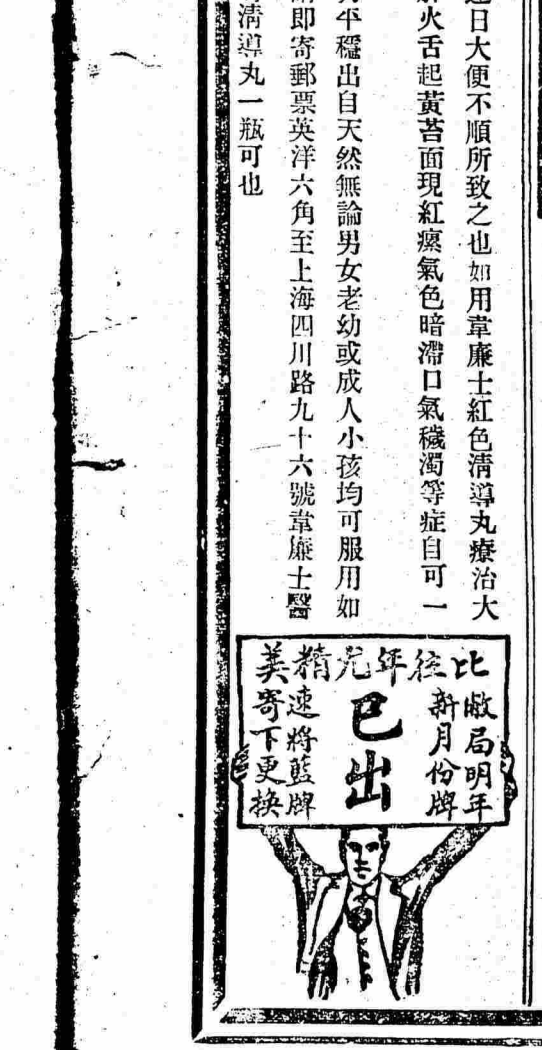 日大便不順所致之也如用韋廉士紅色清導丸療治大
火舌起黃苔面現紅瘰氣色暗滯口氣穢濁等症自可一
平穩出自天然無論男女老幼或成人小孩均可服用如
即寄郵票英洋六角至上海四川路九十六號韋廉士醫
清導丸一瓶可也
比往年尤精美
敝局明年
新月份牌
已出
速將藍牌
寄下更換